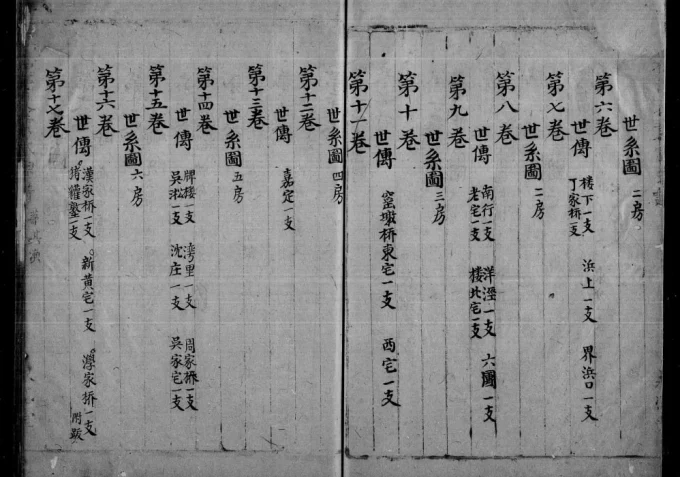 世系圖 二房
第六卷
世傳 楼下一支 浜上一支 界浜口一支
丁家桥一支
第七卷
世系圖 二房
第八卷
世傳 南行一支 洋涇一支 六圖一支
老宅一支 楼北宅一支
第九卷
世系圖 三房
第十卷
世傳 窑墩桥東宅一支 西宅一支
第十一卷
世系圖 四房
第十二卷
世傳 嘉定一支
第十三卷
世系圖 五房
第十四卷
世傳 牌楼一支 湾里一支 周家桥一支
吳淞一支 沈庄一支 吳家宅一支
第十五卷
世系圖 六房
第十六卷
世傳 漢家桥一支 新黄宅一支 家桥一支
一支 附跋
第十七卷